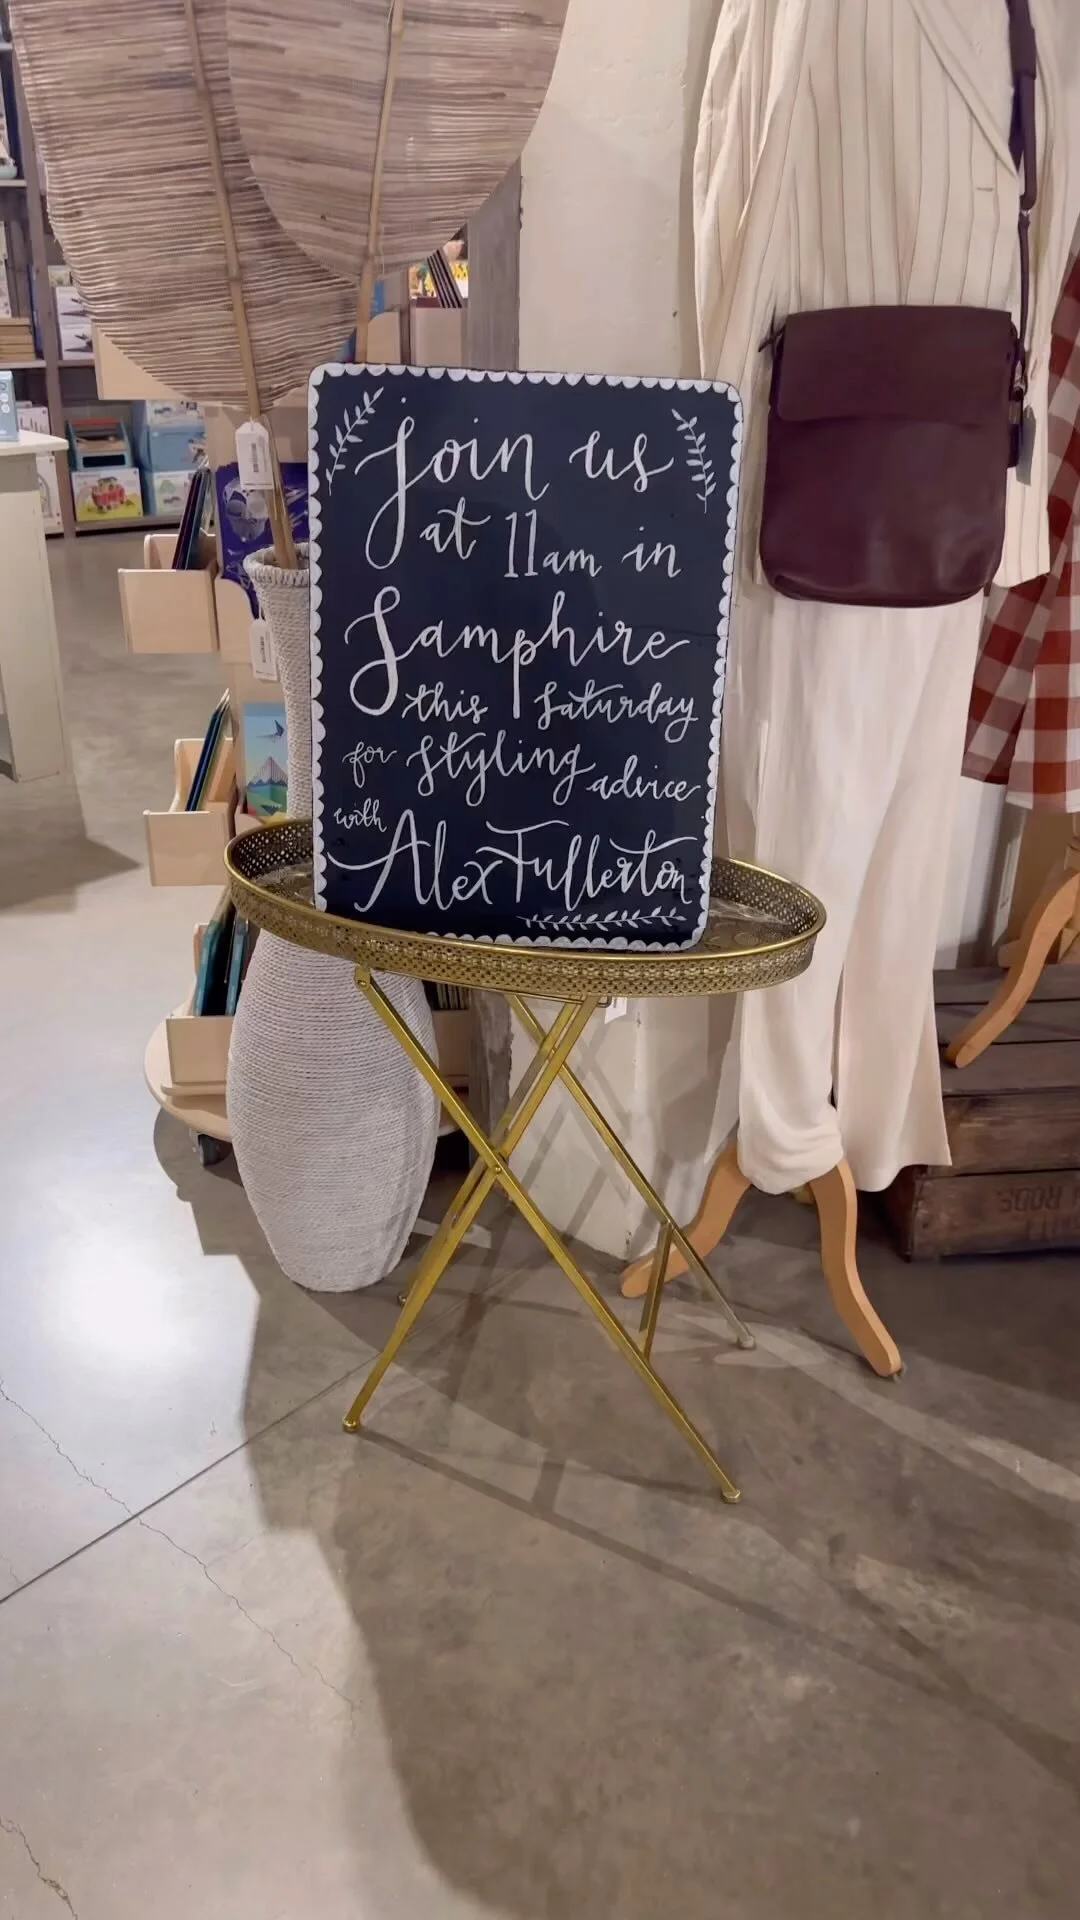 Join us
at 11am in
Samphire
this Saturday
for styling advice
with
Alex Fullerton
RODS